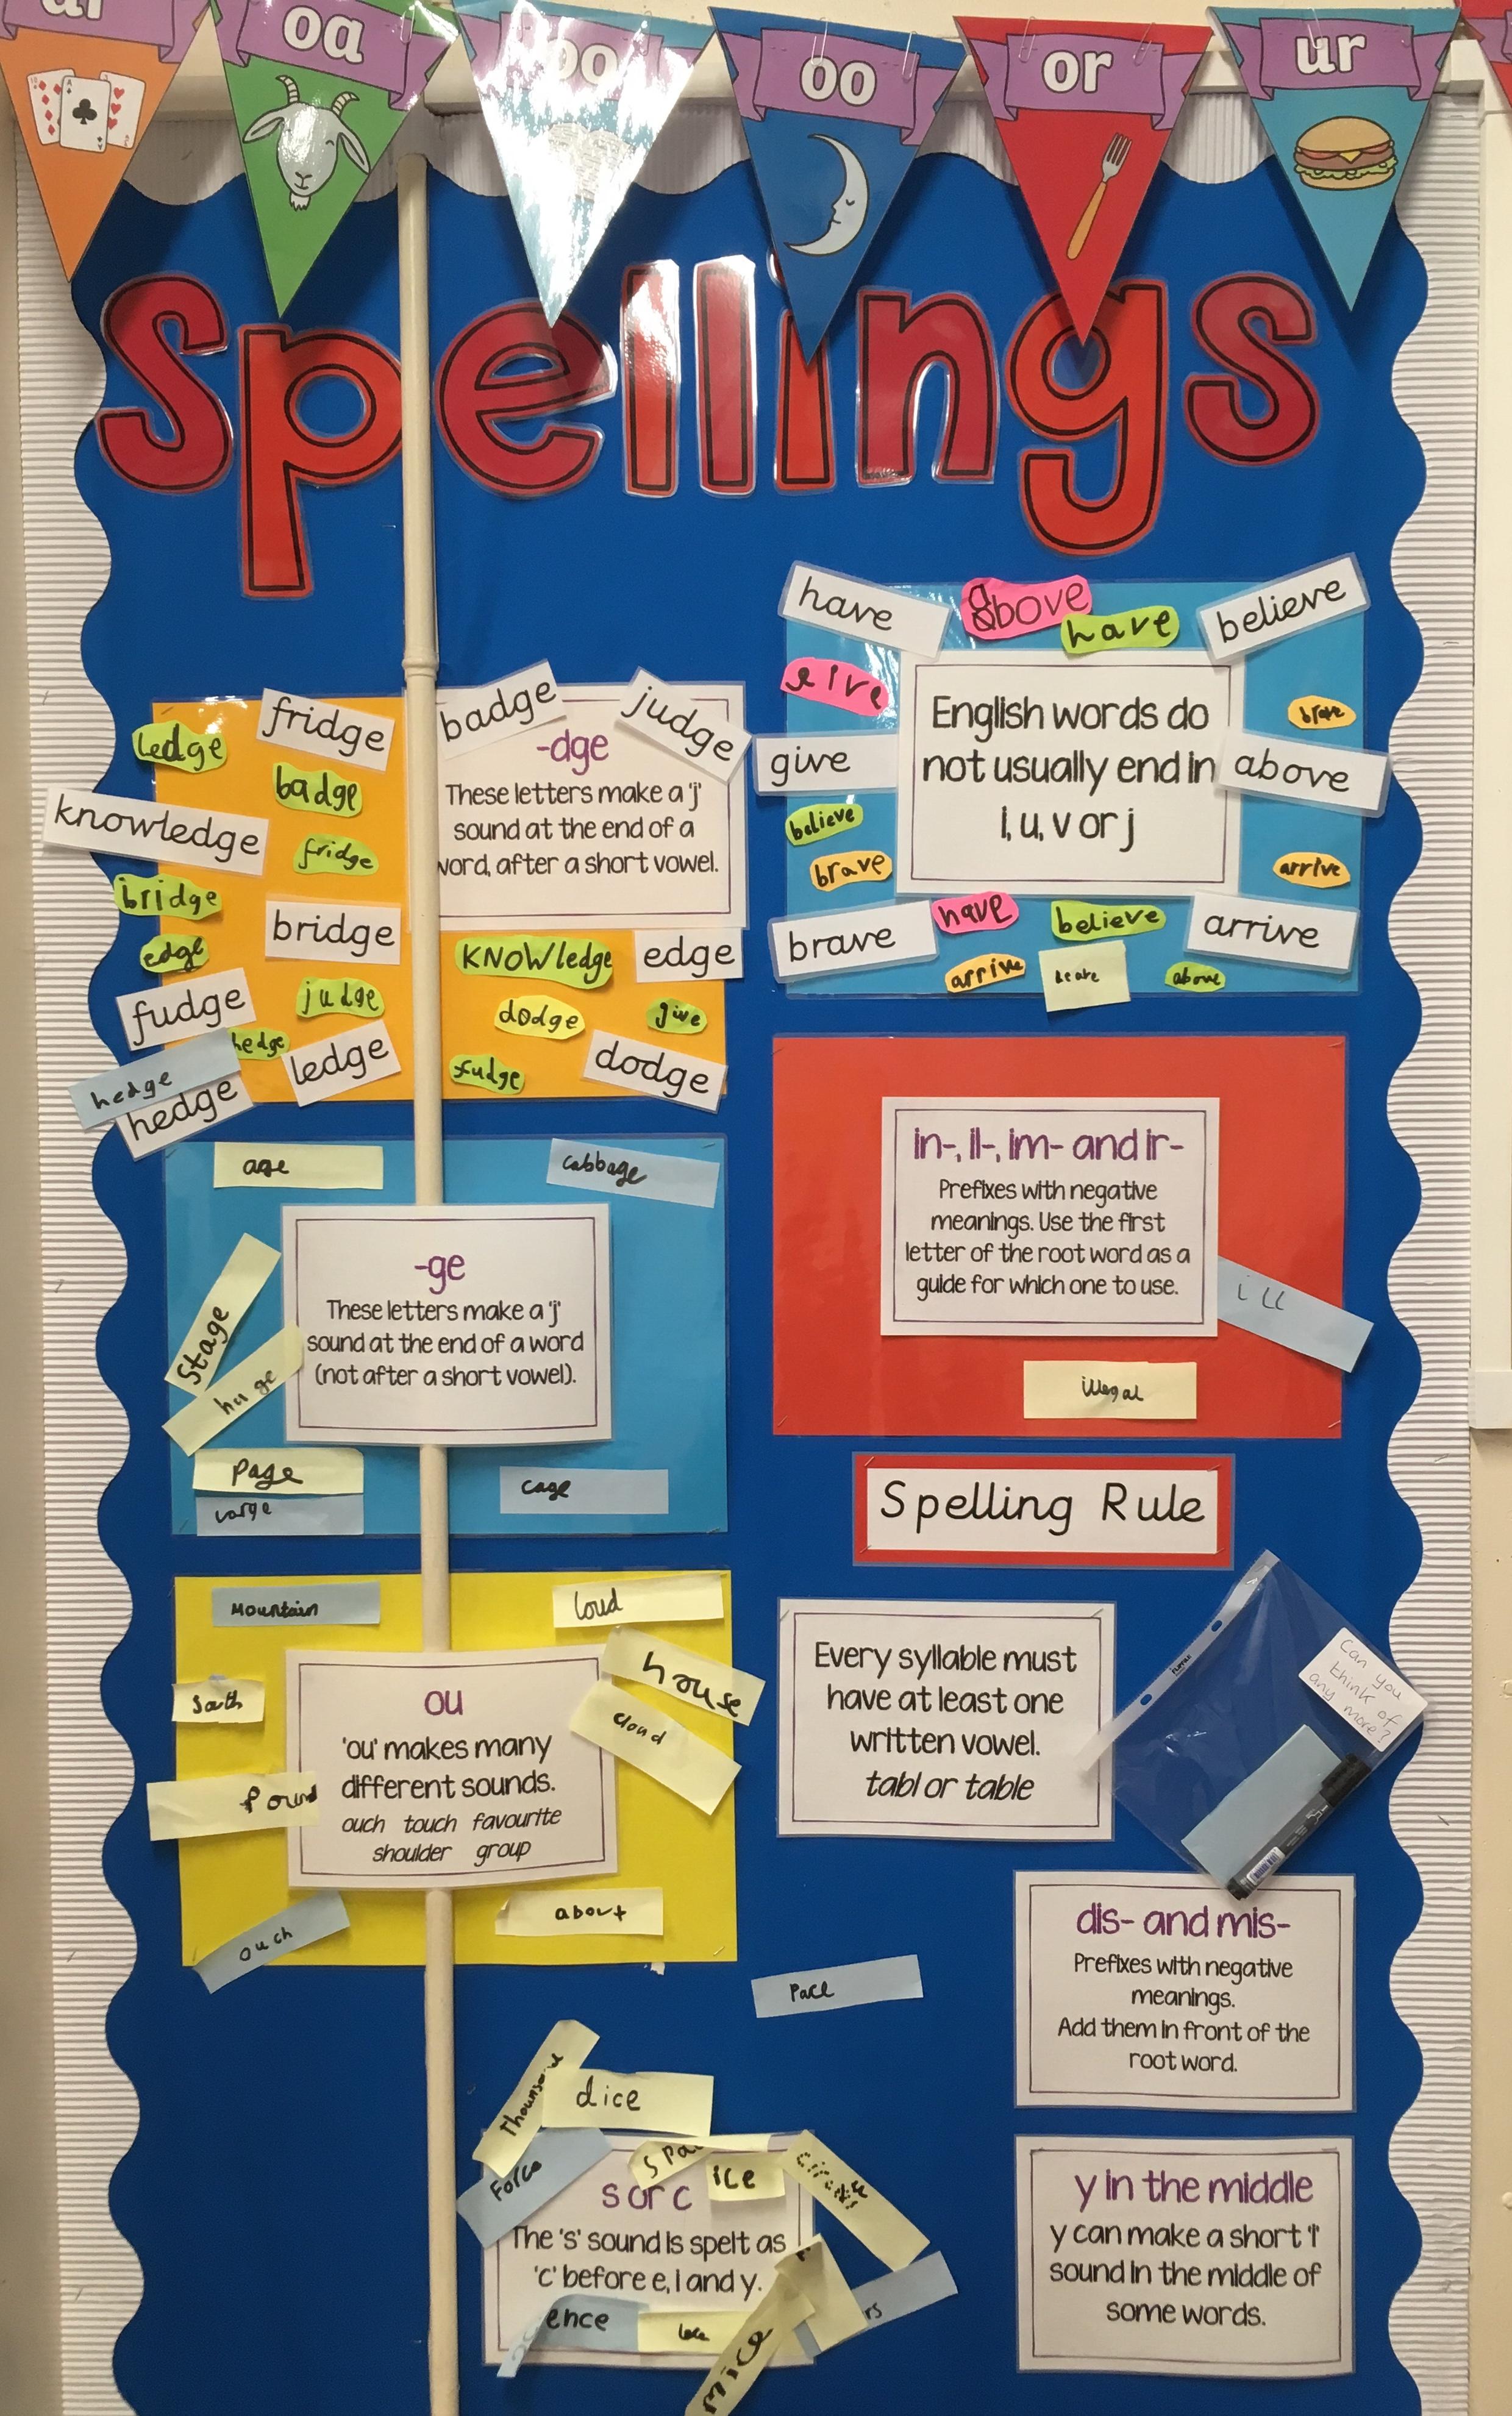 ar
oa
oo
oo
or
ur
Spellings
have
above
have
believe
give
give
brave
above
English words do
not usually end in
i, u, v or j
believe
brave
arrive
brave
have
believe
arrive
arrive
above
badge
judge
-dge
These letters make a 'j'
sound at the end of a
word, after a short vowel.
fridge
ledge
badge
knowledge
fridge
bridge
bridge
edge
KNOWledge
edge
fudge
judge
dodge
give
hedge
ledge
fudge
dodge
hedge
hedge
age
cabbage
-ge
These letters make a 'j'
sound at the end of a word
(not after a short vowel).
Stage
huge
Page
large
cage
in-, il-, im- and ir-
Prefixes with negative
meanings. Use the first
letter of the root word as a
guide for which one to use.
ill
illegal
Spelling Rule
Every syllable must
have at least one
written vowel.
tabl or table
Can you
think of
any
more?
Mountain
loud
house
cloud
South
Pound
ou
'ou' makes many
different sounds.
ouch touch favourite
shoulder group
ouch
about
dis- and mis-
Prefixes with negative
meanings.
Add them in front of the
root word.
Pace
dice
Force
ice
s or c
The 's' sound is spelt as
'c' before e, i and y.
ence
mice
y in the middle
y can make a short 'i'
sound in the middle of
some words.